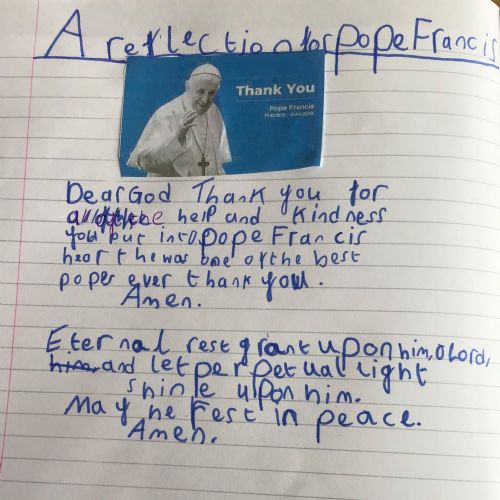 A reflection for Pope Francis
Thank You
Pope Francis
Dear God Thank you for
all of the help and kindness
you put into Pope Francis
heart he was one of the best
popes ever thank you.
Amen.
Eternal rest grant upon him, O Lord,
him, and let perpetual light
shine upon him.
May he rest in peace.
Amen.